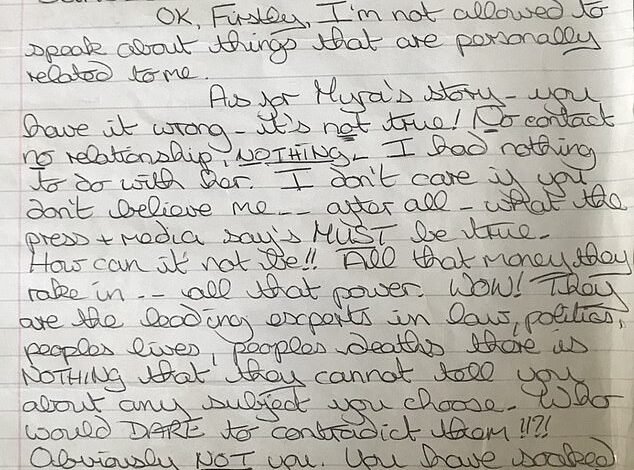 OK, Firstly, I'm not allowed to
speak about things that are personally
related to me.
As for Myra's story - you
have it wrong - it's not true! No contact
no relationship, NOTHING - I had nothing
to do with her. I don't care if you
don't believe me -- after all - what the
press + media say's MUST be true -
How can it not be!! All that money they
rake in -- all that power. WOW! They
are the leading experts in law, politics,
peoples lives, peoples deaths there is
NOTHING that they cannot tell you
about any subject you choose - Who
would DARE to contradict them!!?!
Obviously NOT you. You have sooked